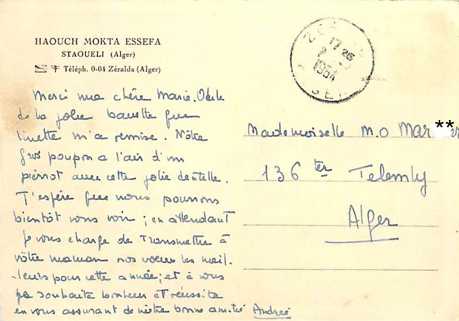 HAOUCH MOKTA ESSEFA
STAOUELI (Alger)
Téléph. 0-04 Zéralda (Alger)
17 25
1954
Merci ma chère Marie-Odile
de la jolie bavette que
linette m'a remise. Nôtre
gros poupon a l'air d'un
pierrot avec cette jolie dentelle.
J'espère que nous pourrons
bientôt vous voir ; en attendant
je vous charge de transmettre à
vôtre maman nos vœux les meil-
leurs pour cette année ; et à vous
je souhaite bonheur et réussite
en vous assurant de nôtre bonne amitié Andrée
Mademoiselle M.O Mar**
136 ter Telemly
Alger